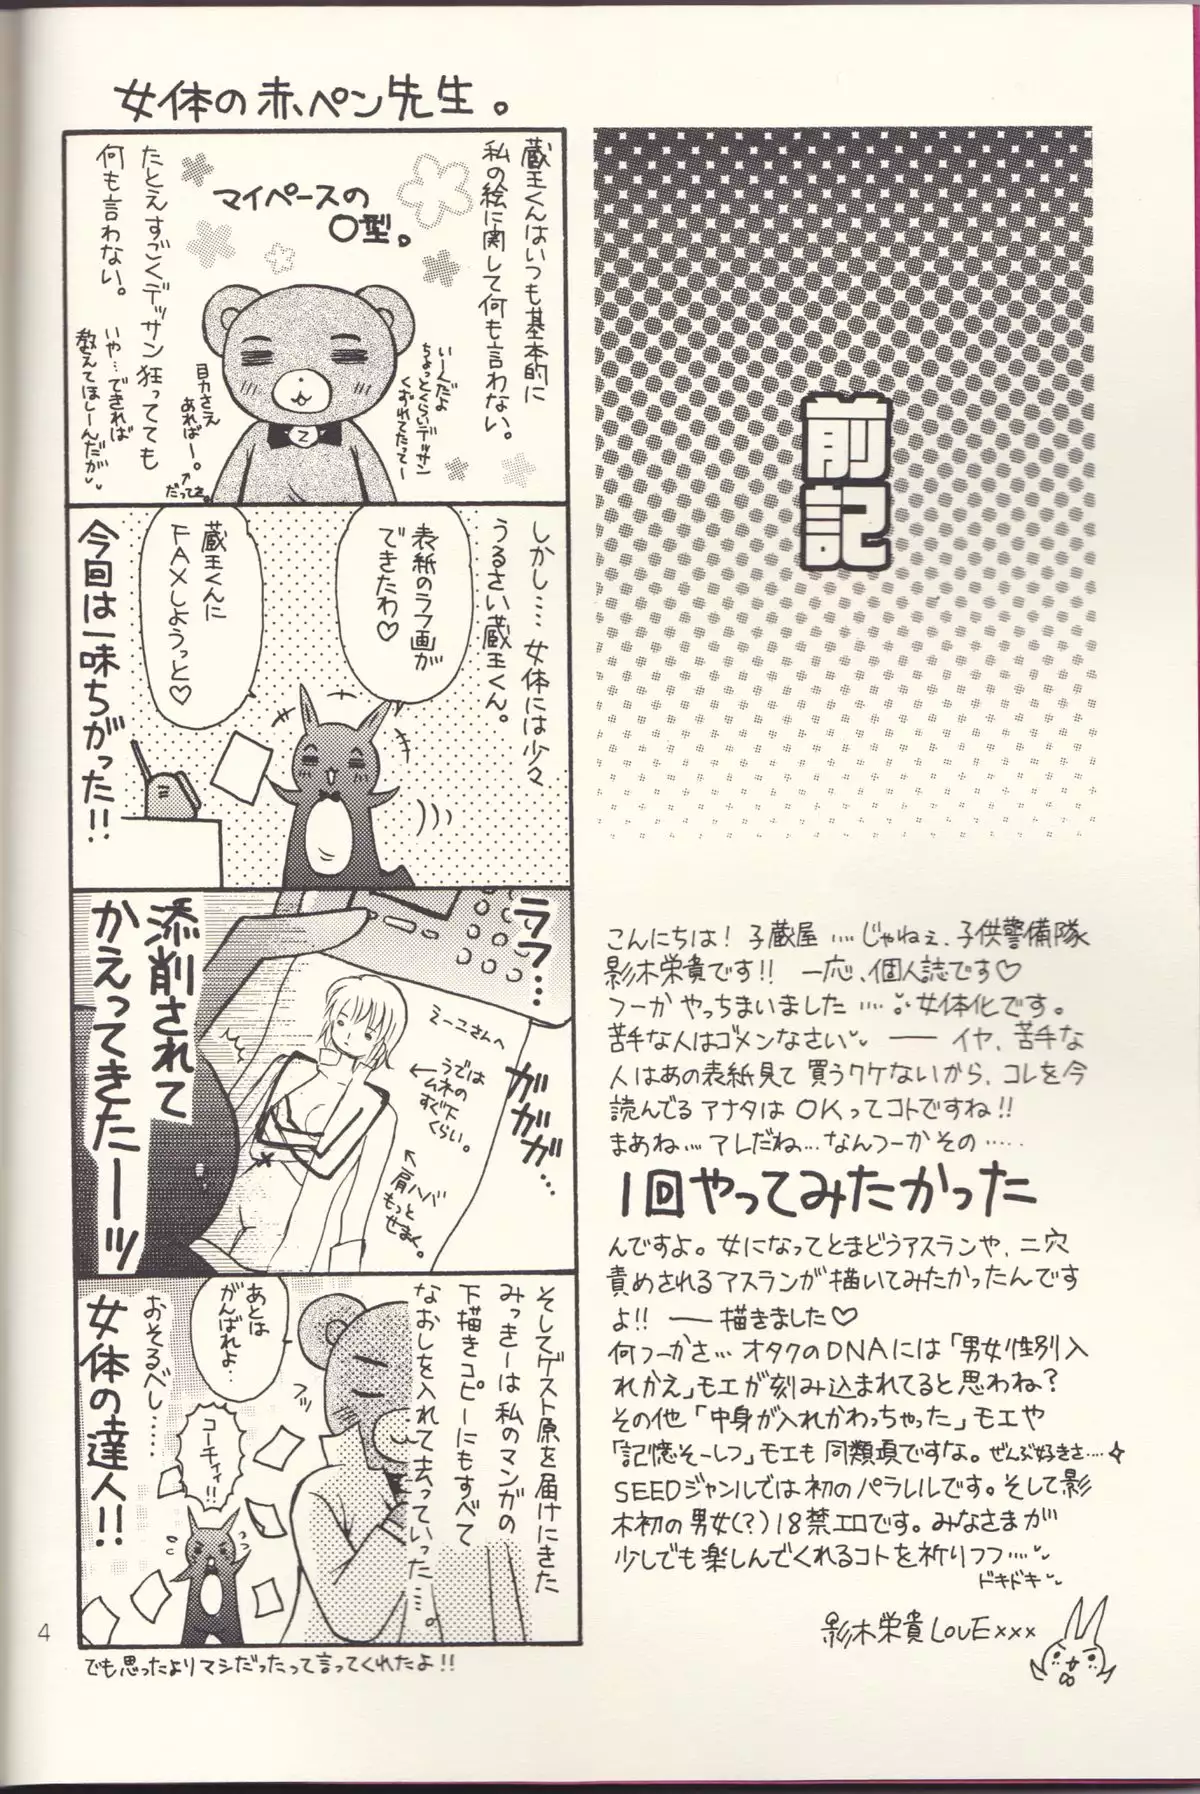 前記
こんにちは！子蔵屋……じゃねぇ、子供警備隊
影木栄貴です!! 一応、個人誌です♡
つーかやっちまいました……女体化です。
苦手な人はゴメンなさい ── イヤ、苦手な
人はあの表紙見て買うワケないから、コレを今
読んでるアナタはOKってコトですね!!
まあね…アレだね…なんつーかその……
1回やってみたかった
んですよ。女になってとまどうアスランや、二穴
責めされるアスランが描いてみたかったんです
よ!! ── 描きました♡
何つーかさ…オタクのDNAには「男女性別入
れかえ」モエが刻み込まれてると思わね？
その他「中身が入れかわっちゃった」モエや
「記憶そーしつ」モエも同類項ですな。ぜんぶ好きさ……
SEEDジャンルでは初のパラレルです。そして影
木初の男女(？)18禁エロです。みなさまが
少しでも楽しんでくれるコトを祈りつつ……
ドキドキ
影木栄貴LOVE×××
女体の赤ペン先生。
蔵王くんはいつも基本的に
私の絵に関して何も言わない。
マイペースの
O型。
たとえすごくデッサン狂ってても
何も言わない。
いーんだよ
ちょっとくらいデッサン
くずれてたってー
目力さえ
あればー。
だってさ。
いや…できれば
教えてほしーんだが
しかし……女体には少々
うるさい蔵王くん。
表紙のラフ画が
できたわ♡
蔵王くんに
FAXしようっと♡
今回は一味ちがった!!
ラフ…
ガガガガ…
ミーユさんへ
うでは
ムネの
すぐ下
くらい。
肩ハバ
もっと
せまく。
添削されて
かえってきたーーッ
そしてゲスト原を届けにきた
みっきーは私のマンガの
下描きコピーにもすべて
なおしを入れて去っていった……。
あとは
がんばれよ…
コーチィ!!
おそるべし……
女体の達人!!
でも思ったよりマシだったって言ってくれたよ!!
4